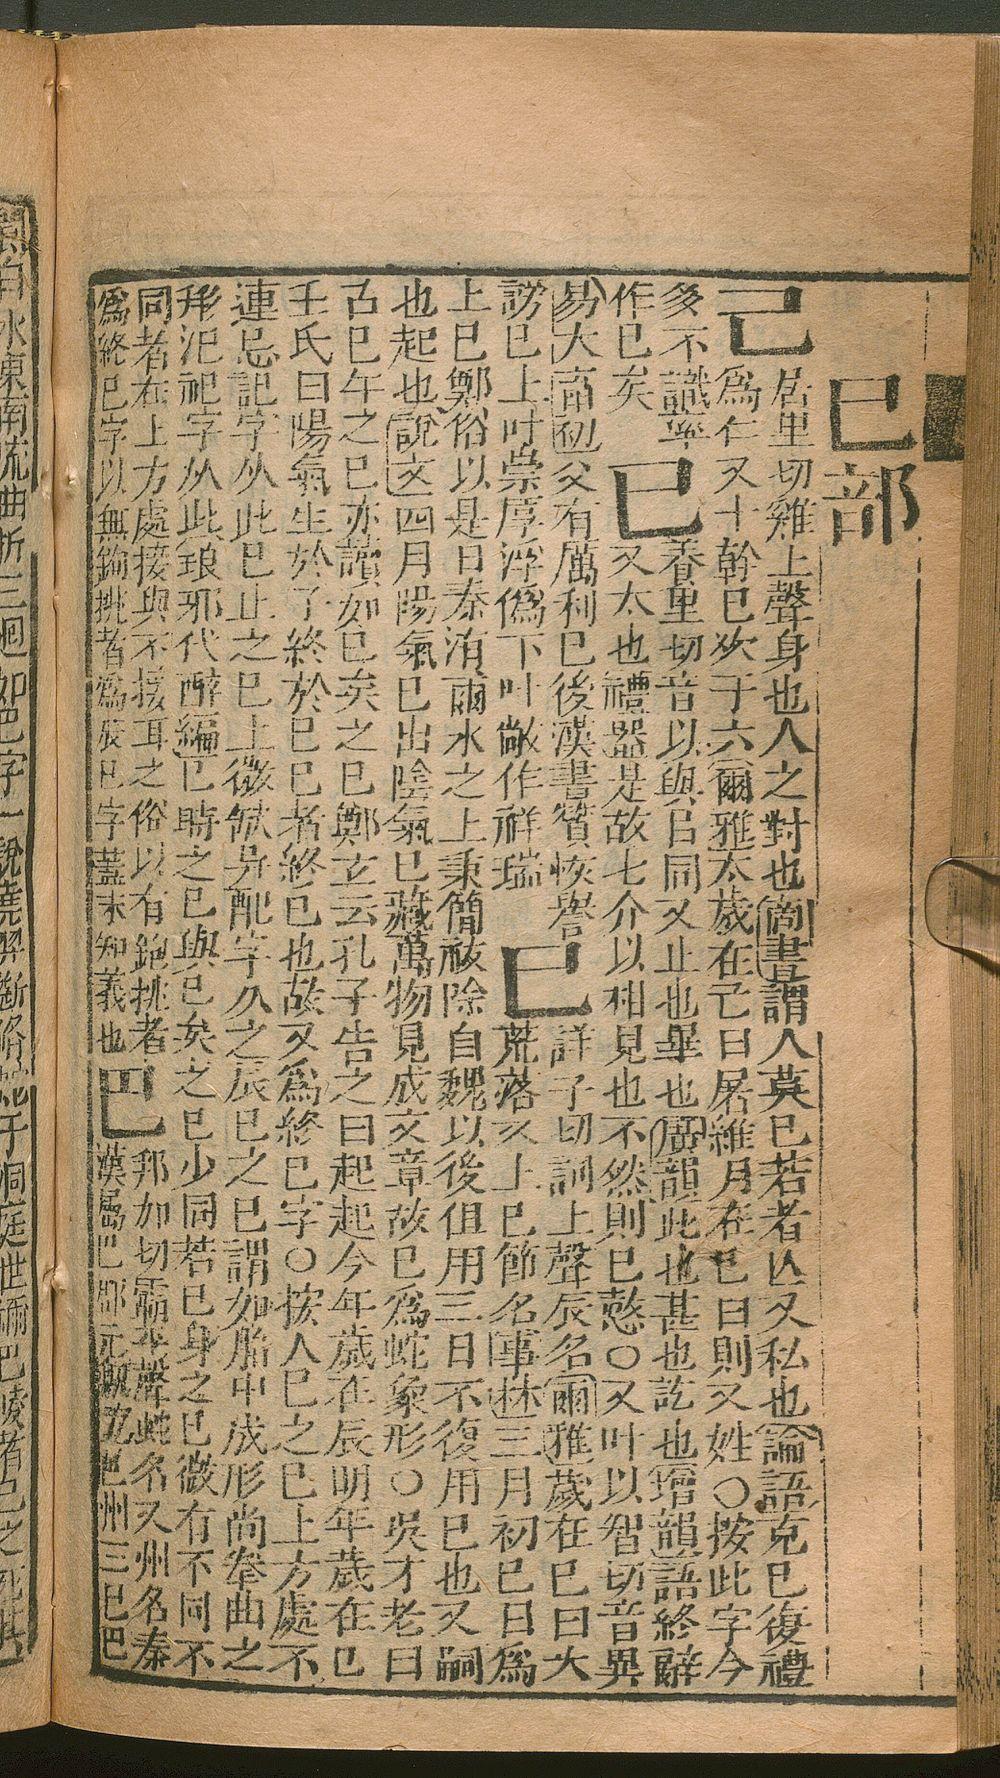 已部
己 居里切雞上聲身也人之對也尚書謂人莫已若者亾又私也論語克已復禮
爲仁又十幹已次于六爾雅太歲在己曰屠維月在已曰則又姓○按此字今
多不識 已 養里切音以與㠯同又止也畢也廣韻此也甚也訖也增韻語終辭
作已矣 又太也禮器是故七介以相見也不然則已慤○又叶以智切音異
易大畜初爻有厲利已後漢書贊恢 巳 詳子切訓上聲辰名爾雅歲在巳曰大
謗巳上叶崇厚浮僞下叶敞作祥瑞 荒落又上巳節名事林三月初巳日爲
上巳鄭俗以是日秦洧兩水之上秉蕑祓除自魏以後但用三日不復用巳也又嗣
也起也說文四月陽氣巳出陰氣巳藏萬物見成文章故巳爲蛇象形○吳才老曰
古巳午之巳亦讀如已矣之巳鄭玄云孔子告之曰起起今年歲在辰明年歲在巳
王氏曰陽氣生於子終於巳巳者終已也故又爲終已字○按人巳之巳上方處不
連忌記字从此巳止之巳上微缺异配字从之辰巳之巳謂如胎中成形尚拳曲之
形汜祀字从此琅邪代醉編巳時之巳與已矣之巳少同若已身之巳微有不同不
同者在上方處接與不接耳之俗以有鉤挑者 巴 邦加切霸平聲蛇名又州名秦
爲終巳字以無鉤挑者爲辰巳字蓋未知義也 漢屬巴郡元巴州三巴巴
自水東南流曲折三廻如巴字一說堯羿斷脩蛇于洞庭世謂巴陵者巴之死